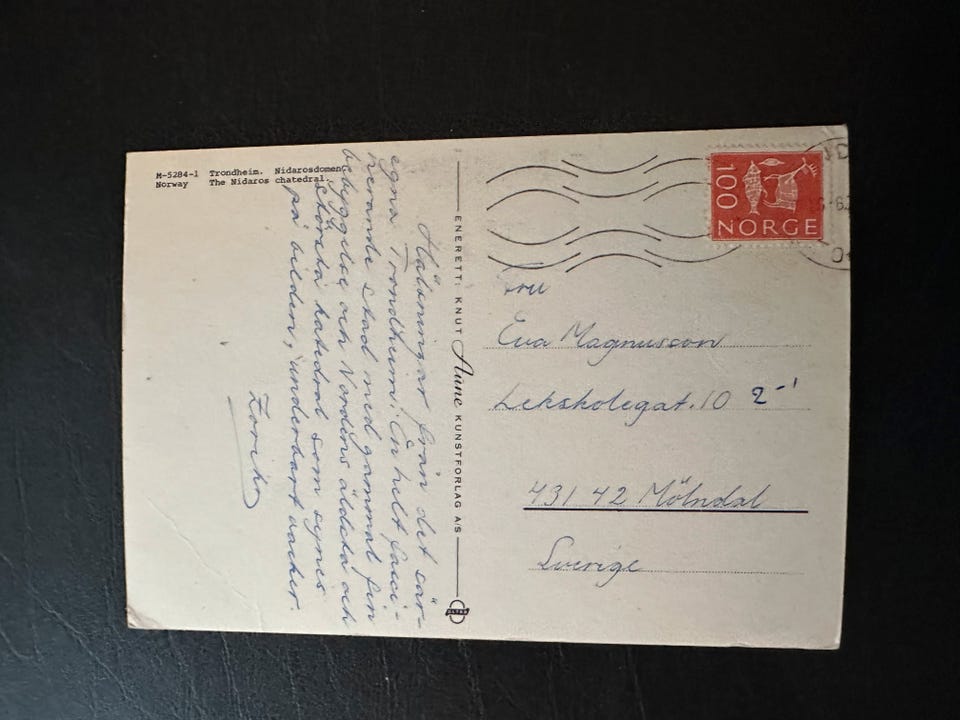 M-5284-1 Trondheim. Nidarosdomen.
Norway The Nidaros chatedral.
Hälsningar från det sär-
egna Trondheim. En helt fasci-
nerande stad med gammal fin
bebyggelse och Nordens äldsta och
största katedral som synis
på bilden, underbart vacker.
ENERETT: KNUT Aune KUNSTFORLAG A/S
100
NORGE
Fru
Eva Magnusson
Lekskolegat. 10 2-1
431 42 Mölndal
Sverige